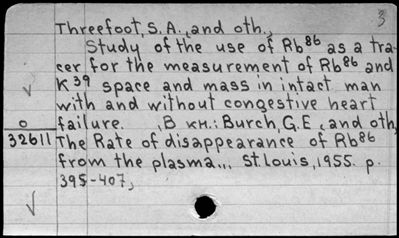 3
Threefoot, S.A., and oth.,
Study of the use of Rb⁸⁶ as a tra-
cer for the measurement of Rb⁸⁶ and
K³⁹ space and mass in intact man
with and without congestive heart
o failure. , В кн.: Burch, G.E., and oth,
32611 The Rate of disappearance of Rb⁸⁶
from the plasma... St. Louis, 1955. p.
395-407,